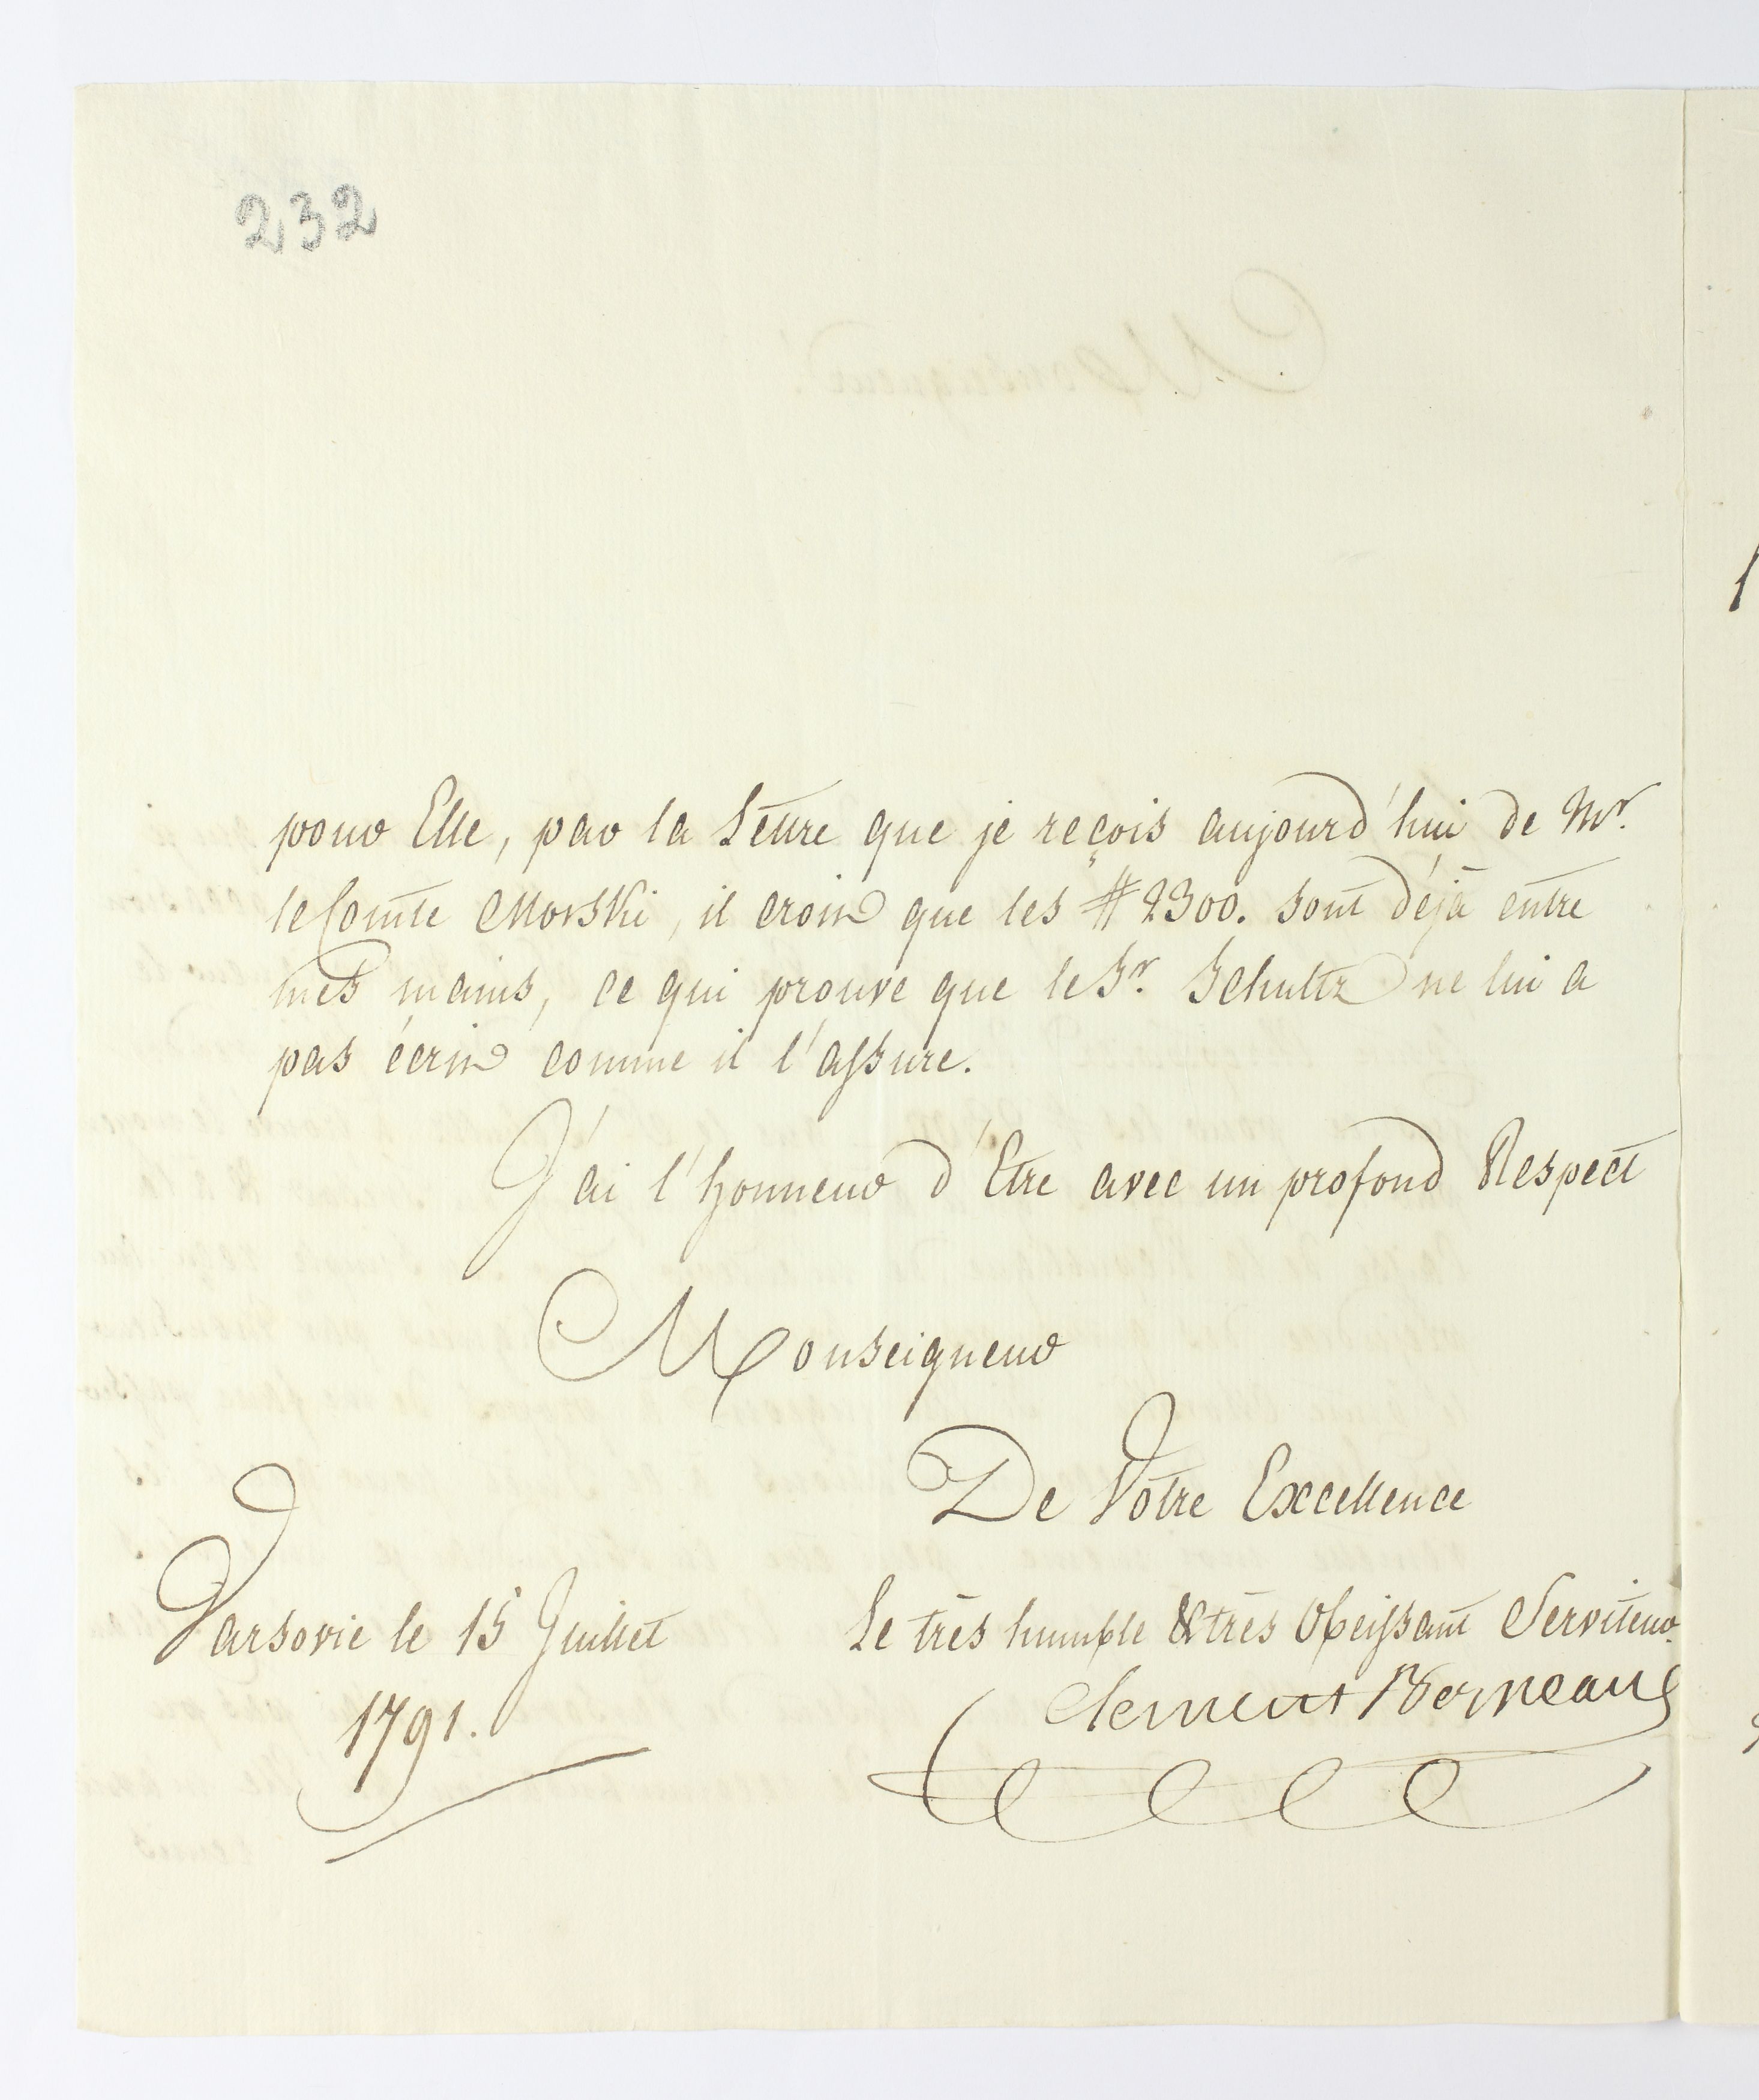 232
pour Elle, par la Lettre que je reçois aujourd'hui de Mr.
le Comte Morski, il croit que les # 2300. sont déjà entre
mes mains, ce qui prouve que le Sr. Schultz ne lui a
pas écrit comme il l'assure.
J'ai l'honneur d'Etre avec un profond Respect
Monseigneur
De Votre Excellence
Varsovie le 15 Juillet
1791.
Le très humble & très Obeissant Serviteur
Clement Berneaux